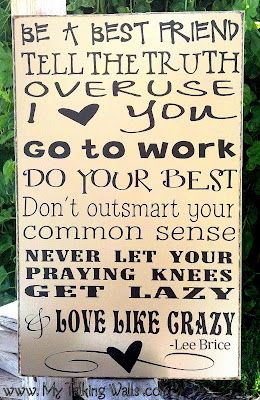 BE A BEST FRIEND
TELL THE TRUTH
OVERUSE
I ♥ YOU
GO TO WORK
DO YOUR BEST
Don't outsmart your
common sense
NEVER LET YOUR
PRAYING KNEES
GET LAZY
& LOVE LIKE CRAZY
-Lee Brice
www.MyTalkingWalls.com